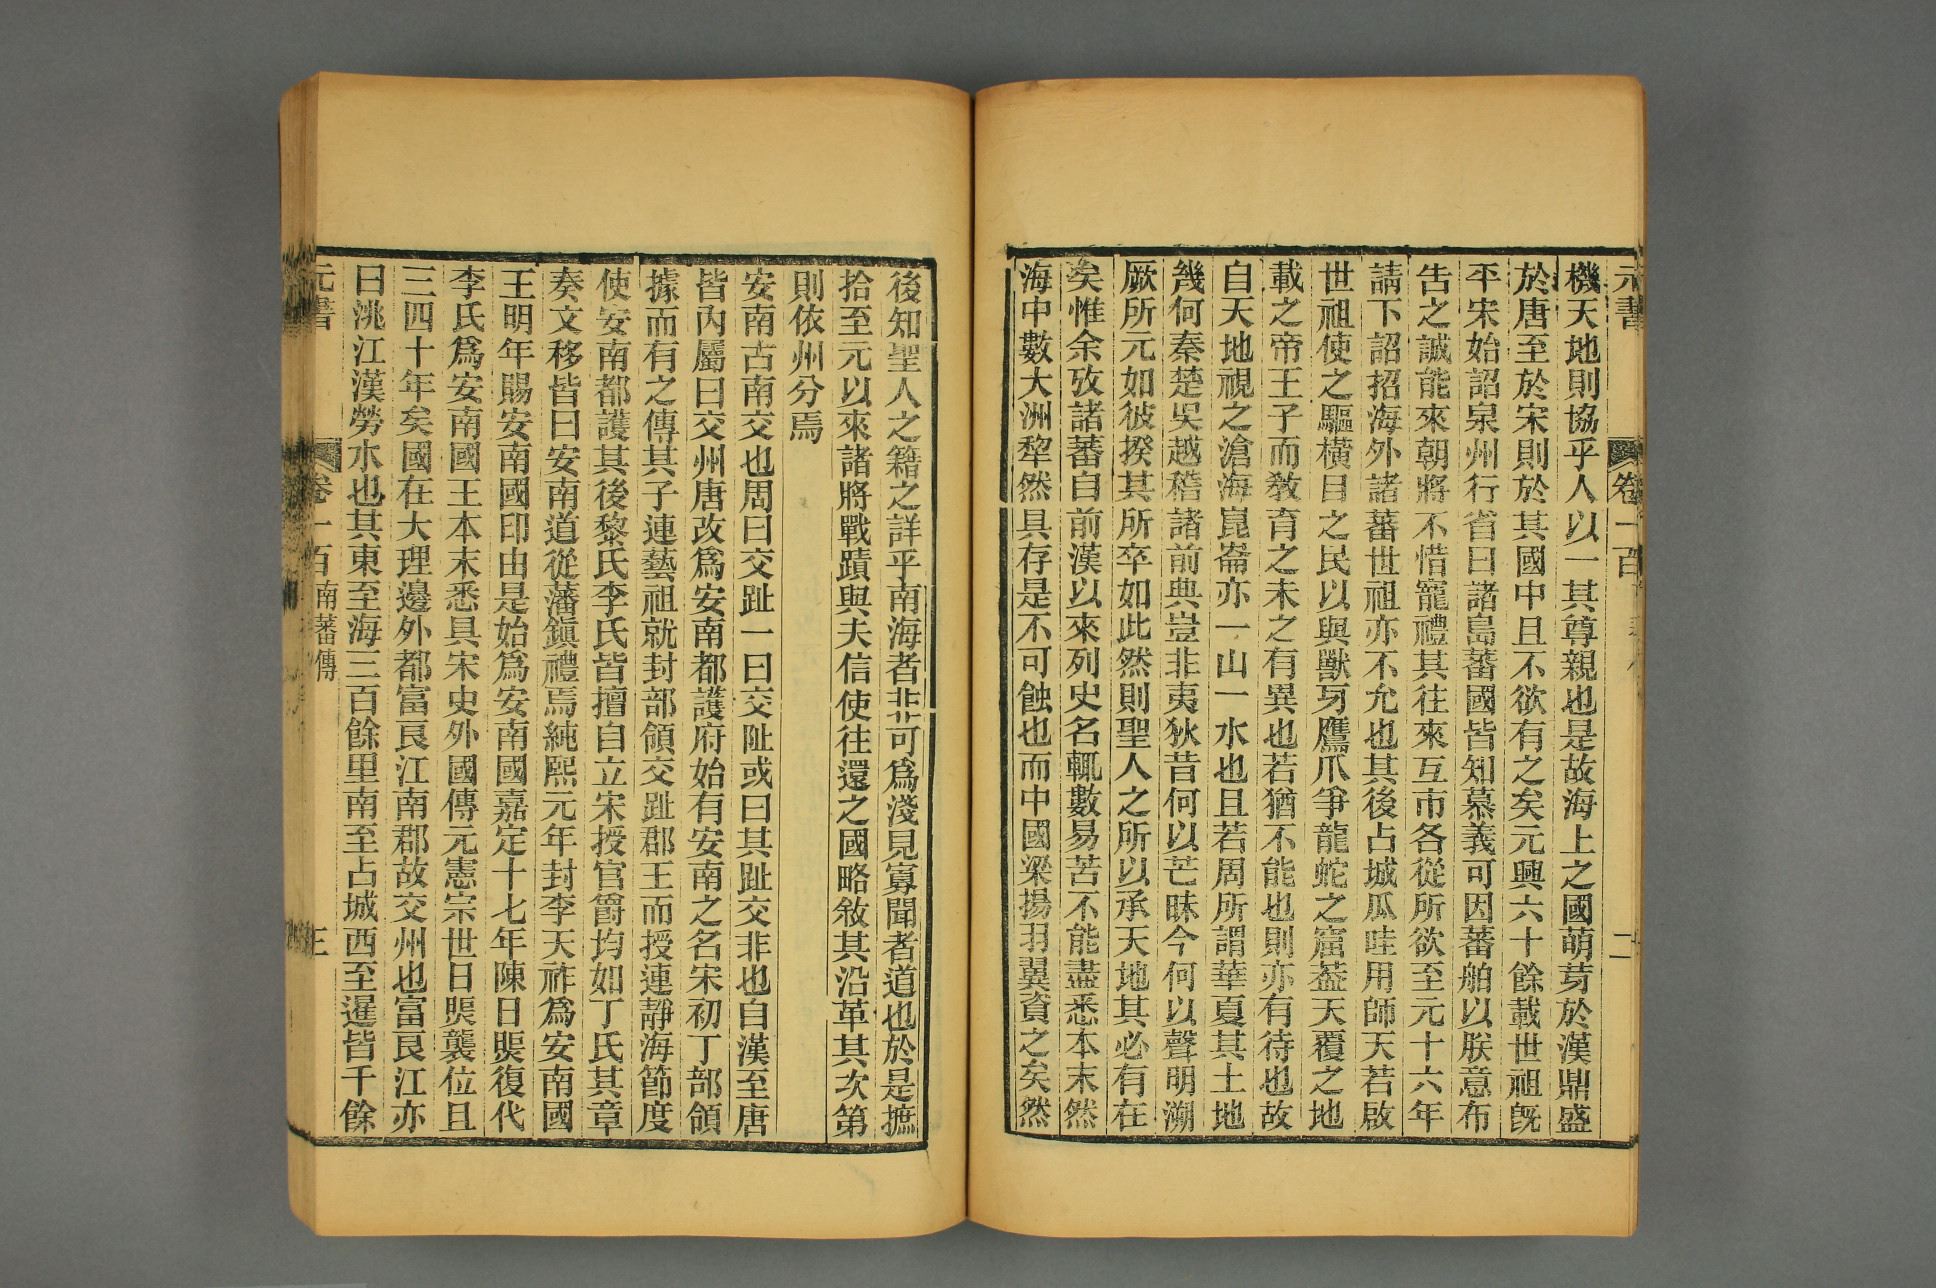 元書
卷一百
二
機天地則協乎人以一其尊親也是故海上之國萌芽於漢鼎盛
於唐至於宋則於其國中且不欲有之矣元興六十餘載世祖旣
平宋始詔泉州行省曰諸島蕃國皆知慕義可因蕃舶以朕意布
告之誠能來朝將不惜寵禮其往來互市各從所欲至元十六年
請下詔招海外諸蕃世祖亦不允也其後占城瓜哇用師天若啟
世祖使之驅橫目之民以與獸牙鷹爪爭龍蛇之窟葢天覆之地
載之帝王子而敎育之未之有異也若猶不能也則亦有待也故
自天地視之滄海崑崙亦一山一水也且若周所謂華夏其土地
幾何秦楚吳越稽諸前典豈非夷狄昔何以芒昧今何以聲明溯
厥所元如彼揆其所卒如此然則聖人之所以承天地其必有在
矣惟余攷諸蕃自前漢以來列史名輒數易苦不能盡悉本末然
海中數大洲犂然具存是不可蝕也而中國梁揚羽翼資之矣然
後知聖人之籍之詳乎南海者非可爲淺見寡聞者道也於是摭
拾至元以來諸將戰蹟與夫信使往還之國略敘其沿革其次第
則依州分焉
安南古南交也周曰交趾一曰交阯或曰其趾交非也自漢至唐
皆內屬曰交州唐改爲安南都護府始有安南之名宋初丁部領
據而有之傳其子連藝祖就封部領交趾郡王而授連靜海節度
使安南都護其後黎氏李氏皆擅自立宋授官爵均如丁氏其章
奏文移皆曰安南道從藩鎭禮焉純熙元年封李天祚爲安南國
王明年賜安南國印由是始爲安南國嘉定十七年陳日煚復代
李氏爲安南國王本末悉具宋史外國傳元憲宗世日煚襲位且
三四十年矣國在大理邊外都富良江南郡故交州也富良江亦
曰洮江漢勞水也其東至海三百餘里南至占城西至暹皆千餘
元書
卷一百
南蕃傳
三